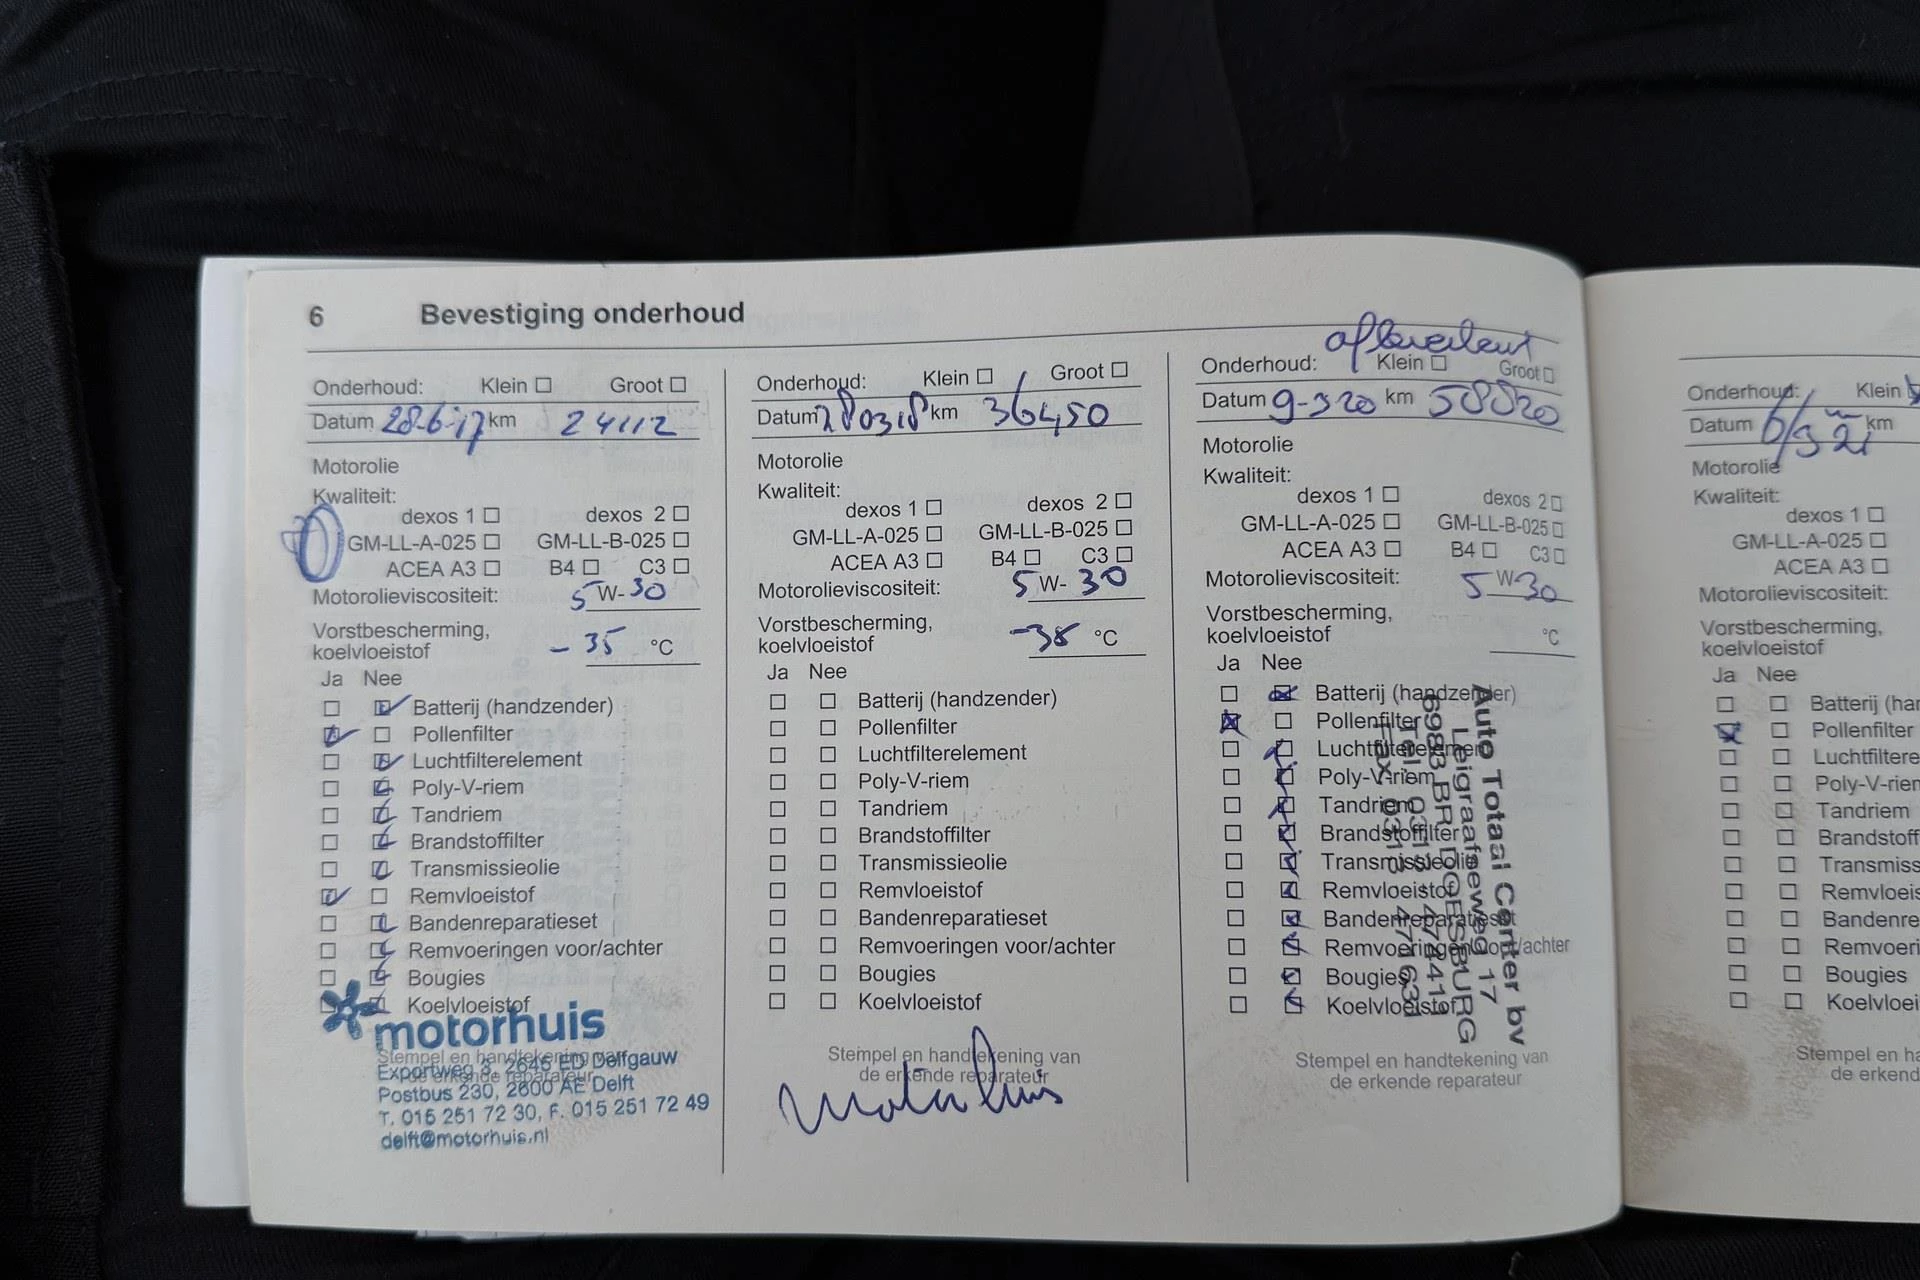 6 Bevestiging onderhoud
Onderhoud: Klein Groot
Datum 28-6-17 km 24112
Motorolie
Kwaliteit:
dexos 1 dexos 2
GM-LL-A-025 GM-LL-B-025
ACEA A3 B4 C3
Motorolieviscositeit: 5 W-30
Vorstbescherming,
koelvloeistof - 35 °C
Ja Nee
Batterij (handzender)
Pollenfilter
Luchtfilterelement
Poly-V-riem
Tandriem
Brandstoffilter
Transmissieolie
Remvloeistof
Bandenreparatieset
Remvoeringen voor/achter
Bougies
Koelvloeistof
motorhuis
Stempel en handtekening van
de erkende reparateur
Exportweg 3, 2645 ED Delfgauw
Postbus 230, 2600 AE Delft
T. 015 251 72 30, F. 015 251 72 49
delft@motorhuis.nl
Onderhoud: Klein Groot
Datum 280318 km 36450
Motorolie
Kwaliteit:
dexos 1 dexos 2
GM-LL-A-025 GM-LL-B-025
ACEA A3 B4 C3
Motorolieviscositeit: 5 W- 30
Vorstbescherming,
koelvloeistof -38 °C
Ja Nee
Batterij (handzender)
Pollenfilter
Luchtfilterelement
Poly-V-riem
Tandriem
Brandstoffilter
Transmissieolie
Remvloeistof
Bandenreparatieset
Remvoeringen voor/achter
Bougies
Koelvloeistof
Stempel en handtekening van
de erkende reparateur
Motorhuis
afleverbeurt
Onderhoud: Klein Groot
Datum 9-3 20 km 58820
Motorolie
Kwaliteit:
dexos 1 dexos 2
GM-LL-A-025 GM-LL-B-025
ACEA A3 B4 C3
Motorolieviscositeit: 5 W-30
Vorstbescherming,
koelvloeistof °C
Ja Nee
Batterij (handzender)
Pollenfilter
Luchtfilterelement
Poly-V-riem
Tandriem
Brandstoffilter
Transmissieolie
Remvloeistof
Bandenreparatieset
Remvoeringen voor/achter
Bougies
Koelvloeistof
Auto Totaal Center bv
Leigraafseweg 17
6983 BR DOESBURG
Tel. 0313 472419
Fax. 0313 471631
Stempel en handtekening van
de erkende reparateur
Onderhoud: Klein
Datum 6/3 21 km
Motorolie
Kwaliteit:
dexos 1
GM-LL-A-025
ACEA A3
Motorolieviscositeit:
Vorstbescherming,
koelvloeistof
Ja Nee
Batterij (har
Pollenfilter
Luchtfiltere
Poly-V-rien
Tandriem
Brandstoff
Transmiss
Remvloeis
Bandenre
Remvoeri
Bougies
Koelvloei
Stempel en ha
de erkend